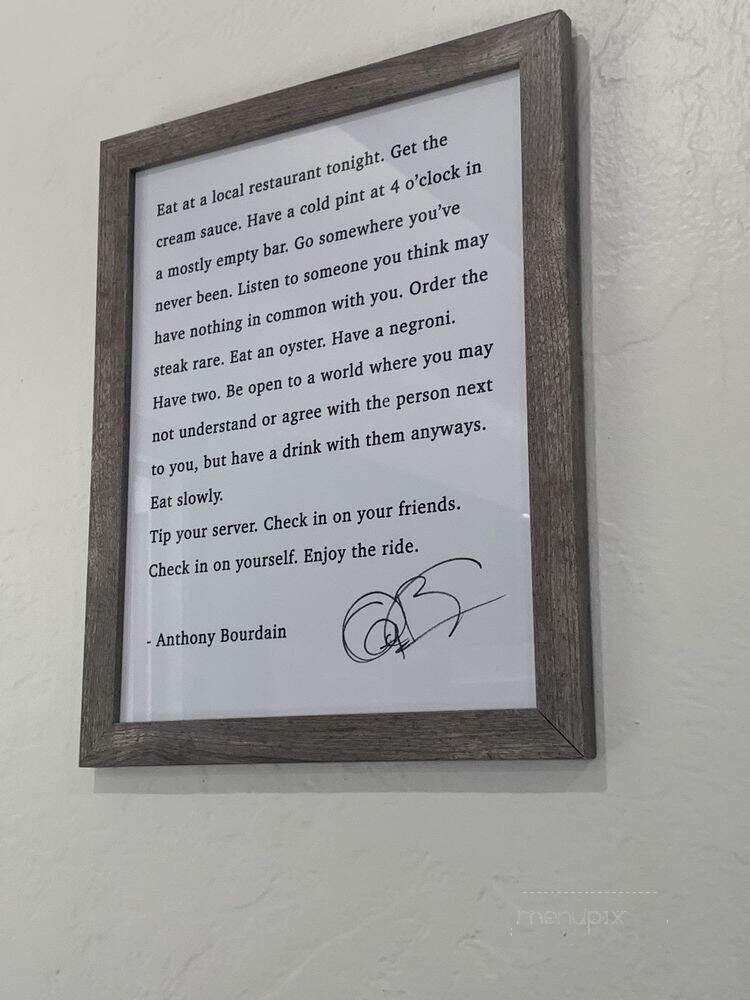 Eat at a local restaurant tonight. Get the
cream sauce. Have a cold pint at 4 o'clock in
a mostly empty bar. Go somewhere you've
never been. Listen to someone you think may
have nothing in common with you. Order the
steak rare. Eat an oyster. Have a negroni.
Have two. Be open to a world where you may
not understand or agree with the person next
to you, but have a drink with them anyways.
Eat slowly.
Tip your server. Check in on your friends.
Check in on yourself. Enjoy the ride.
- Anthony Bourdain
menupix